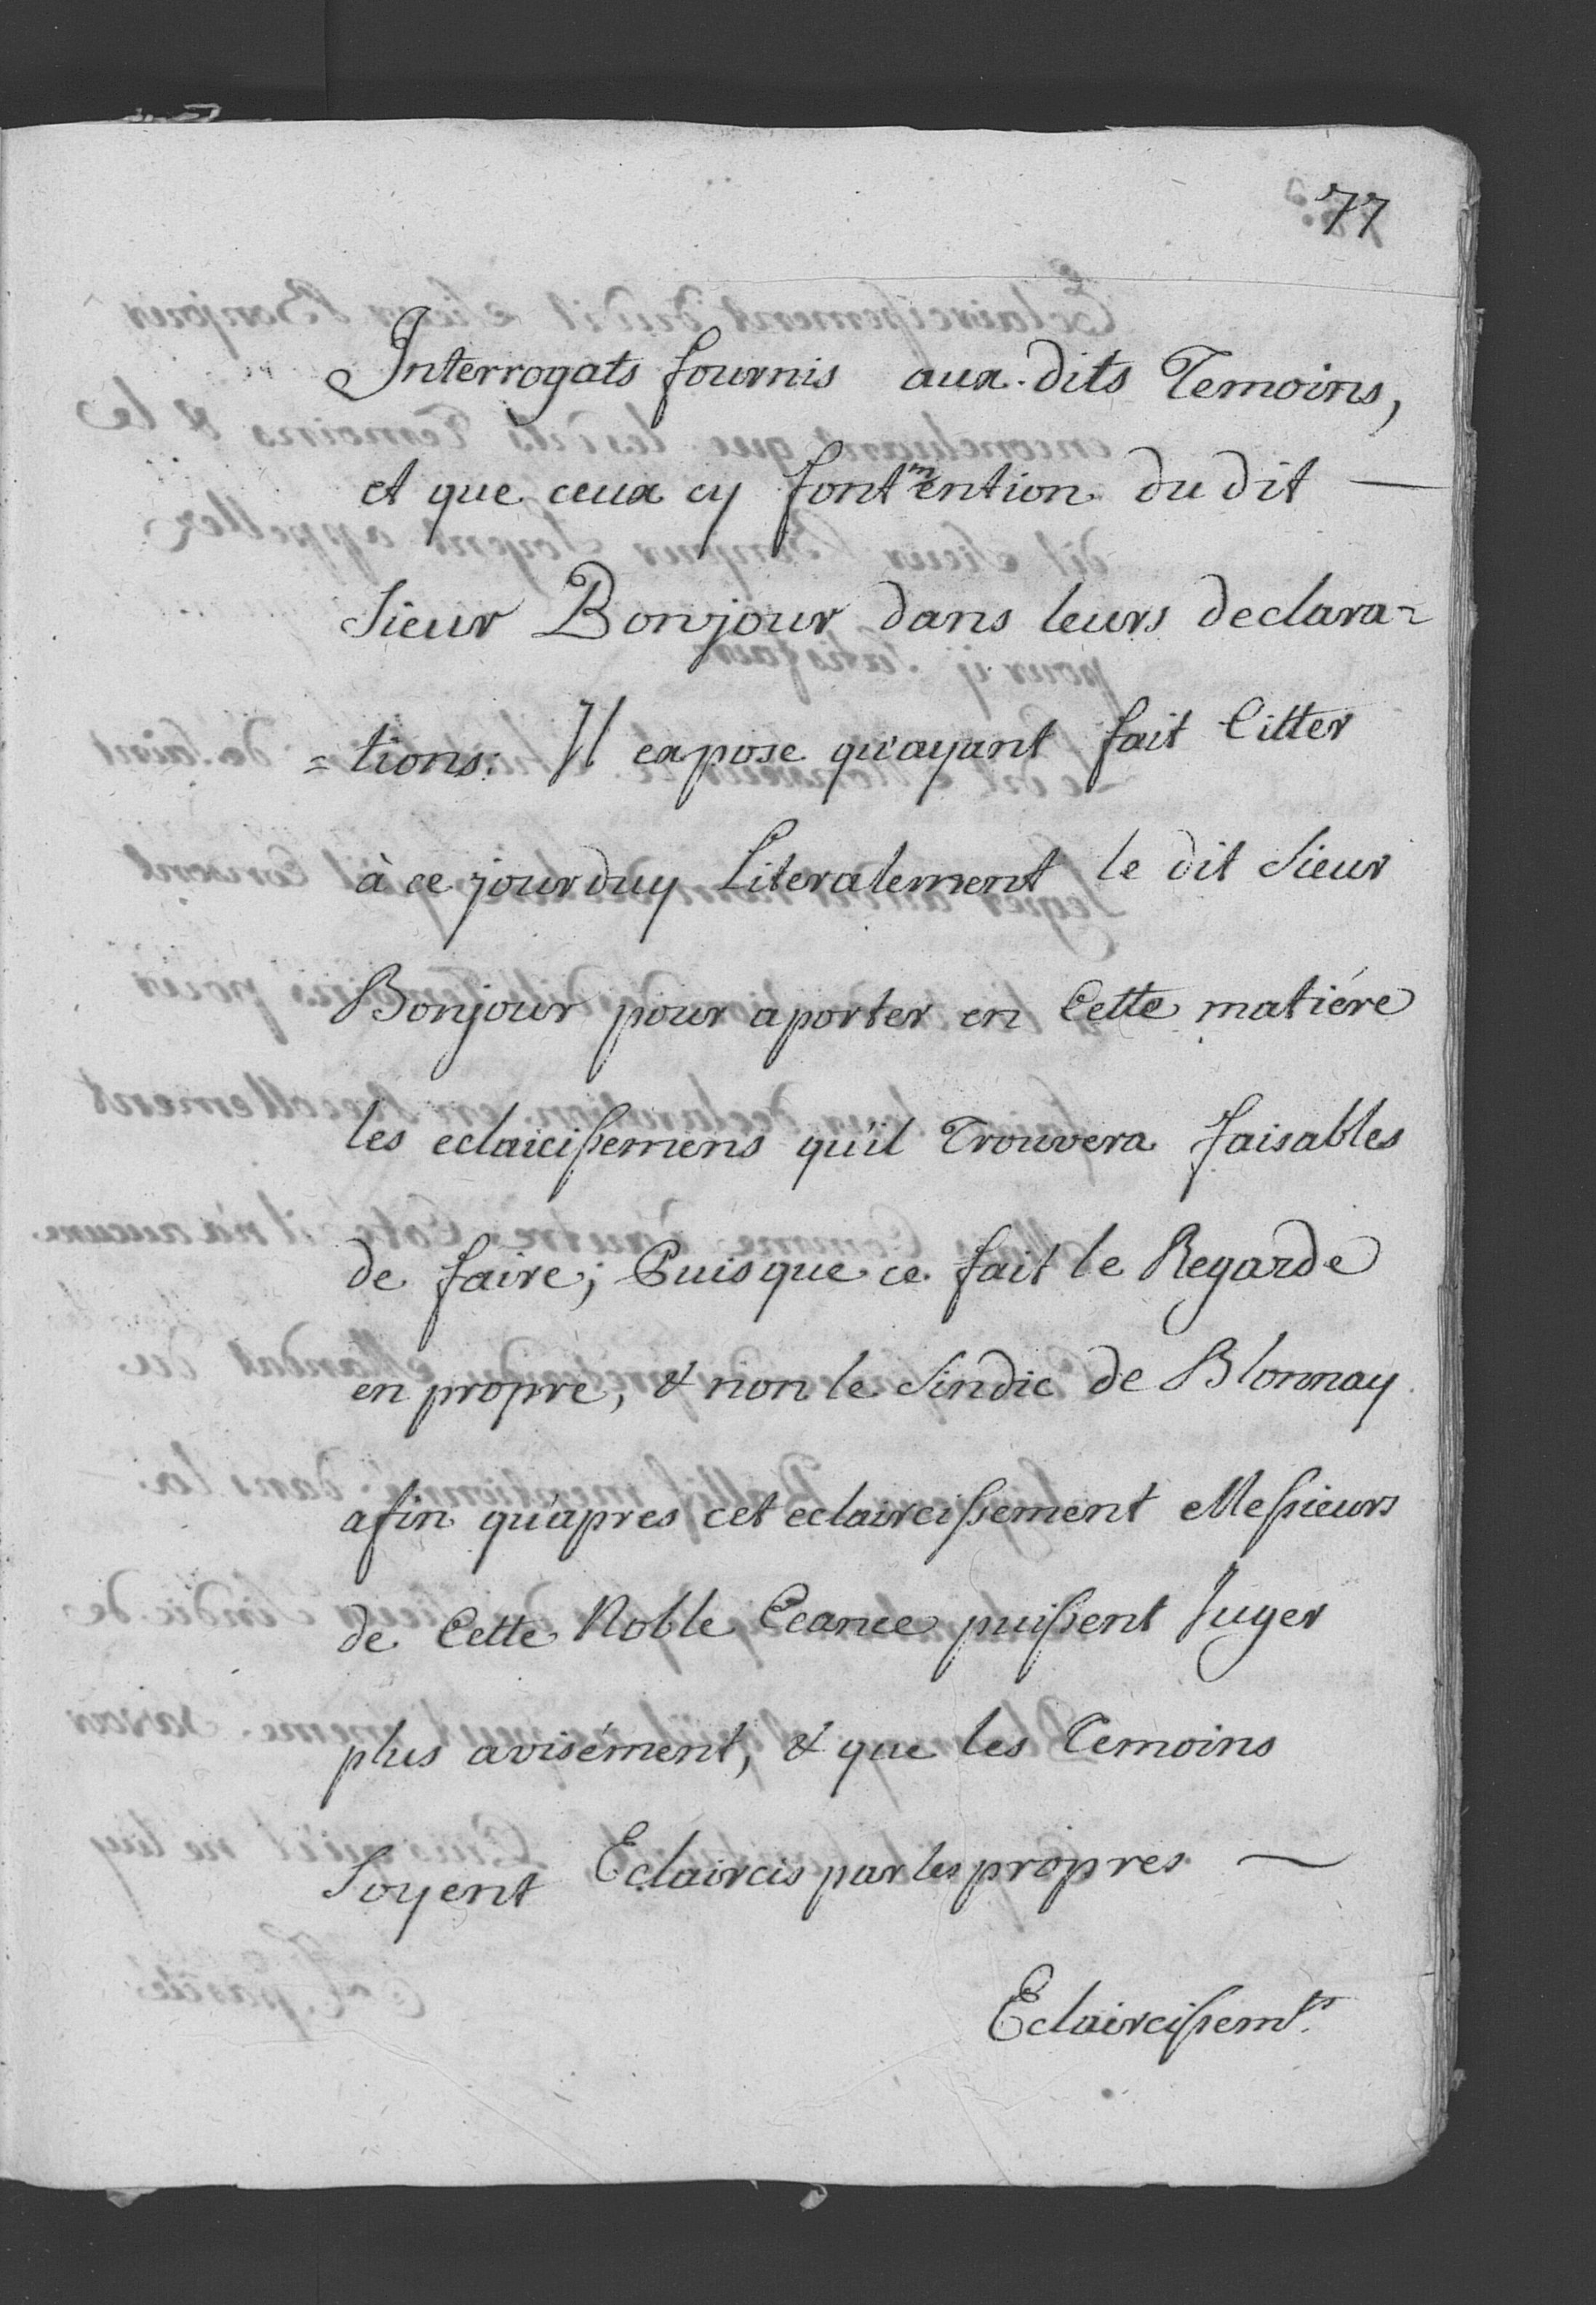 77
Interrogats fournis aux dits Temoins,
et que ceux cy font mention du dit —
Sieur Bonjour dans leurs declara=
=tions: Il expose qu'ayant fait Citter
à ce jourduy Literalement le dit Sieur
Bonjour pour aporter en Cette matiére
les eclaicissemens qu'il Trouvera faisables
de faire; Puisque ce fait le Regarde
en propre, & non le Sindic de Blonnay
afin qu'apres cet eclaircissement Messieurs
de Cette Noble Ceance puissent Juger
plus avisément, & que les Temoins
Soyent Eclaircis par les propres —
Eclaircissemts.